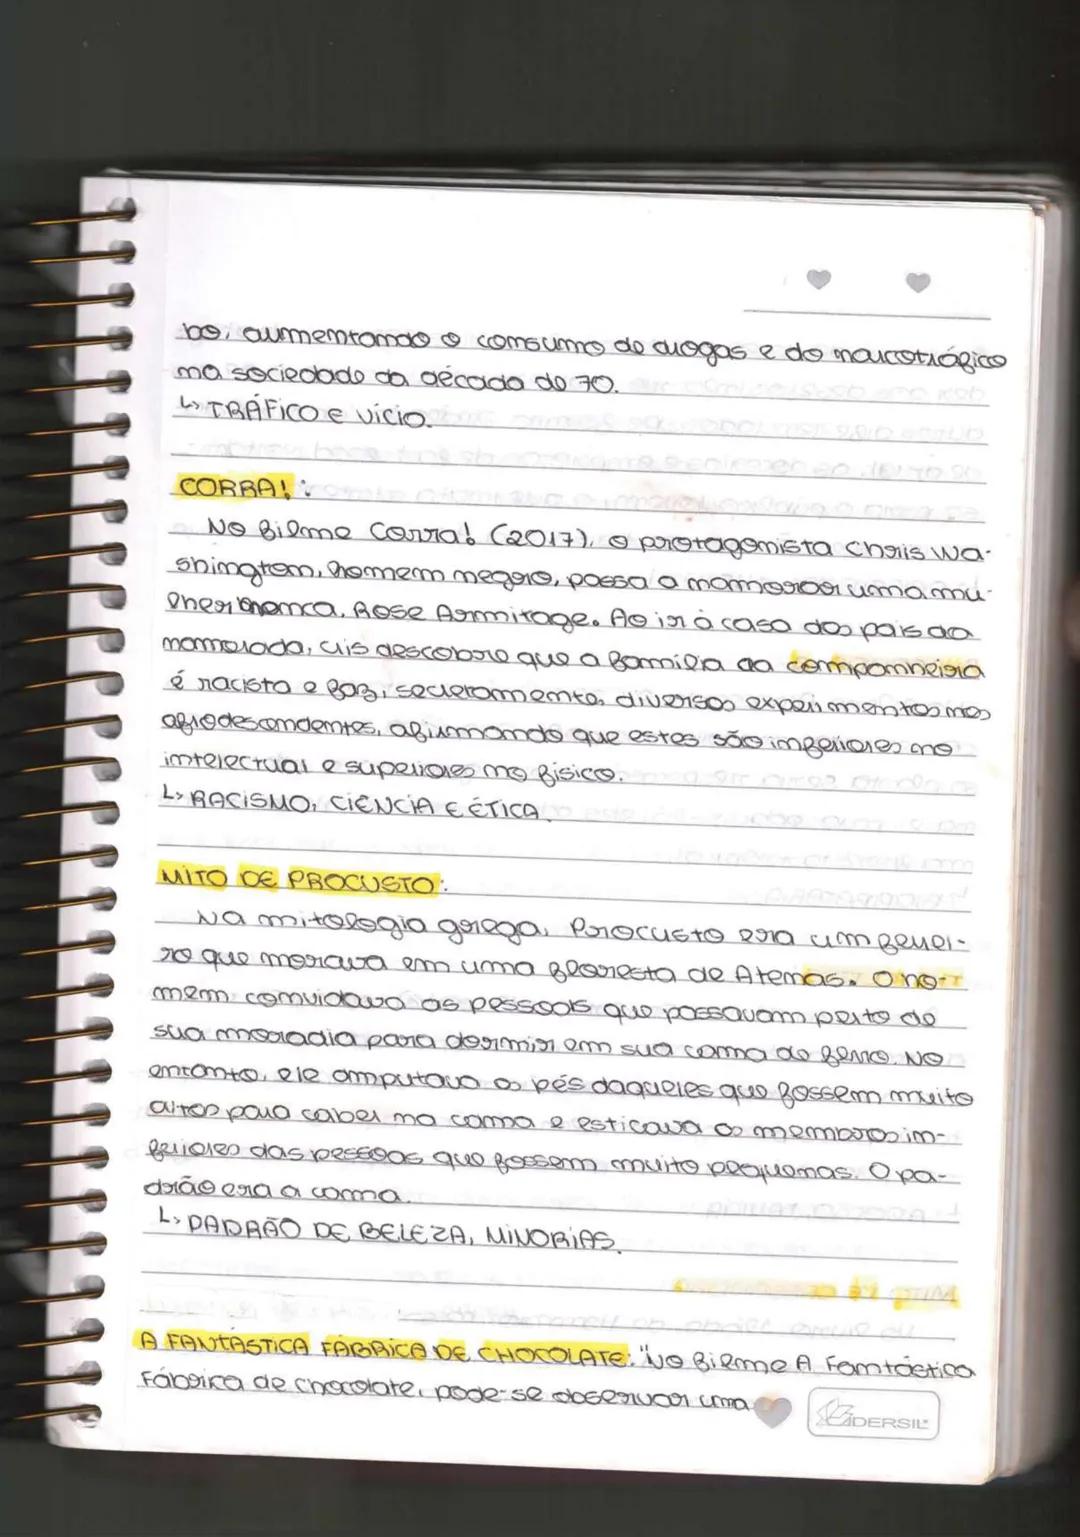 bo, aumentando o consumo de drogas e do narcotráfico
na sociedade da década de 70.
↳ TRÁFICO E VÍCIO.
CORRA!:
No filme Corra! (2017), o protagonista Chris Wa-
shington, homem negro, passa a namorar uma mu-
lher branca, Rose Armitage. Ao ir à casa dos pais da
namorada, descobre que a família da companheira
é racista e faz, secretamente, diversos experimentos nos
afrodescendentes, afirmando que estes são inferiores no
intelectual e superiores no físico.
↳ RACISMO, CIÊNCIA E ÉTICA.
MITO DE PROCUSTO:
Na mitologia grega, Procusto era um ferrei-
ro que morava em uma floresta de Atenas. O ho-
mem convidava as pessoas que passavam perto de
sua moradia para dormir em sua cama de ferro. No
entanto, ele amputava os pés daqueles que fossem muito
altos para caber na cama e esticava os membros in-
feriores das pessoas que fossem muito pequenas. O pa-
drão era a cama.
↳ PADRÃO DE BELEZA, MINORIAS.
A FANTÁSTICA FÁBRICA DE CHOCOLATE: "No filme A Fantástica
Fábrica de Chocolate, pode-se observar uma
IDERSIL